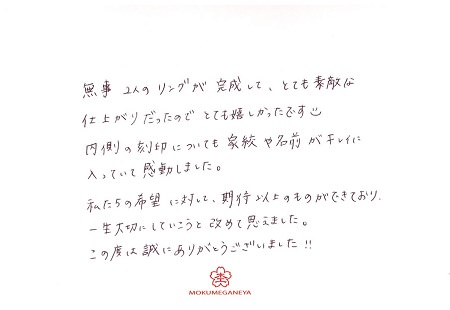 無事 2人の リングが 完成して、とても素敵な
仕上がりだったので とても嬉しかったです
内側の刻印についても 家紋や名前がキレイに
入っていて感動しました。
私たちの希望に対して、期待以上のものができており、
一生大切にしていこうと改めて思えました。
この度は誠にありがとうございました!!
MOKUMEGANEYA